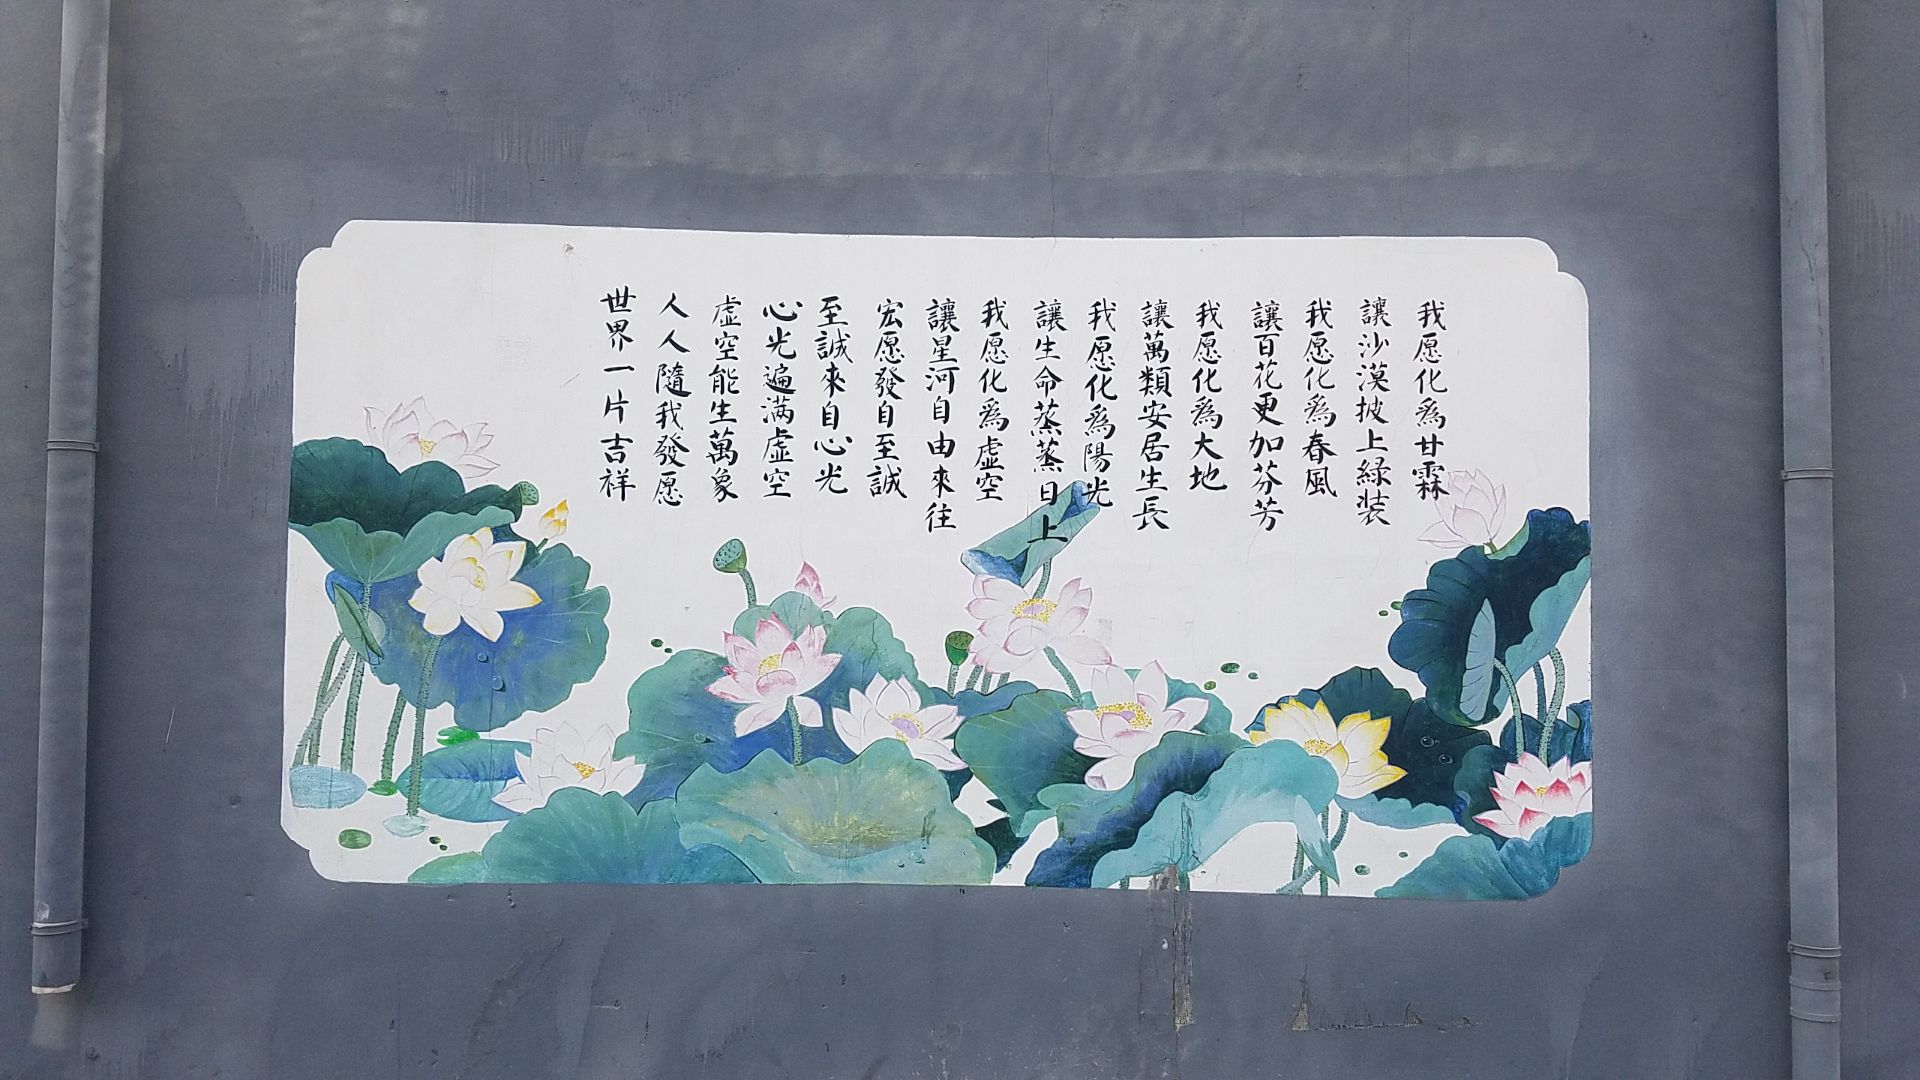 我愿化爲甘霖
讓沙漠披上緑装
我愿化爲春風
讓百花更加芬芳
我愿化爲大地
讓萬類安居生長
我愿化爲陽光
讓生命蒸蒸日上
我愿化爲虚空
讓星河自由來往
宏愿發自至誠
至誠來自心光
心光遍满虚空
虚空能生萬象
人人隨我發愿
世界一片吉祥